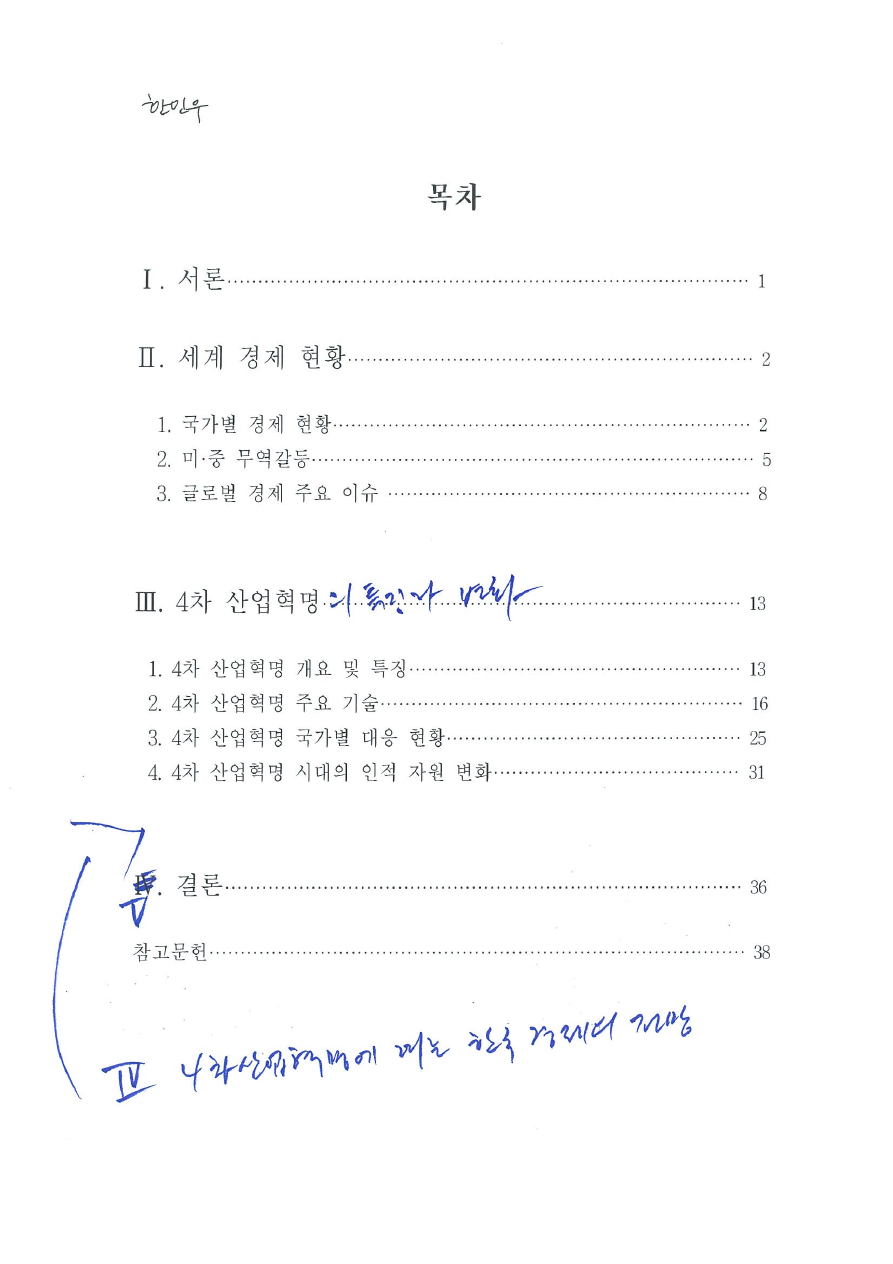 한민우
목차
Ⅰ. 서론 1
Ⅱ. 세계 경제 현황 2
1. 국가별 경제 현황 2
2. 미·중 무역갈등 5
3. 글로벌 경제 주요 이슈 8
Ⅲ. 4차 산업혁명의 특징과 변화 13
1. 4차 산업혁명 개요 및 특징 13
2. 4차 산업혁명 주요 기술 16
3. 4차 산업혁명 국가별 대응 현황 25
4. 4차 산업혁명 시대의 인적 자원 변화 31
Ⅴ. 결론 36
참고문헌 38
Ⅳ 4차산업혁명에 한국 경제의 전망